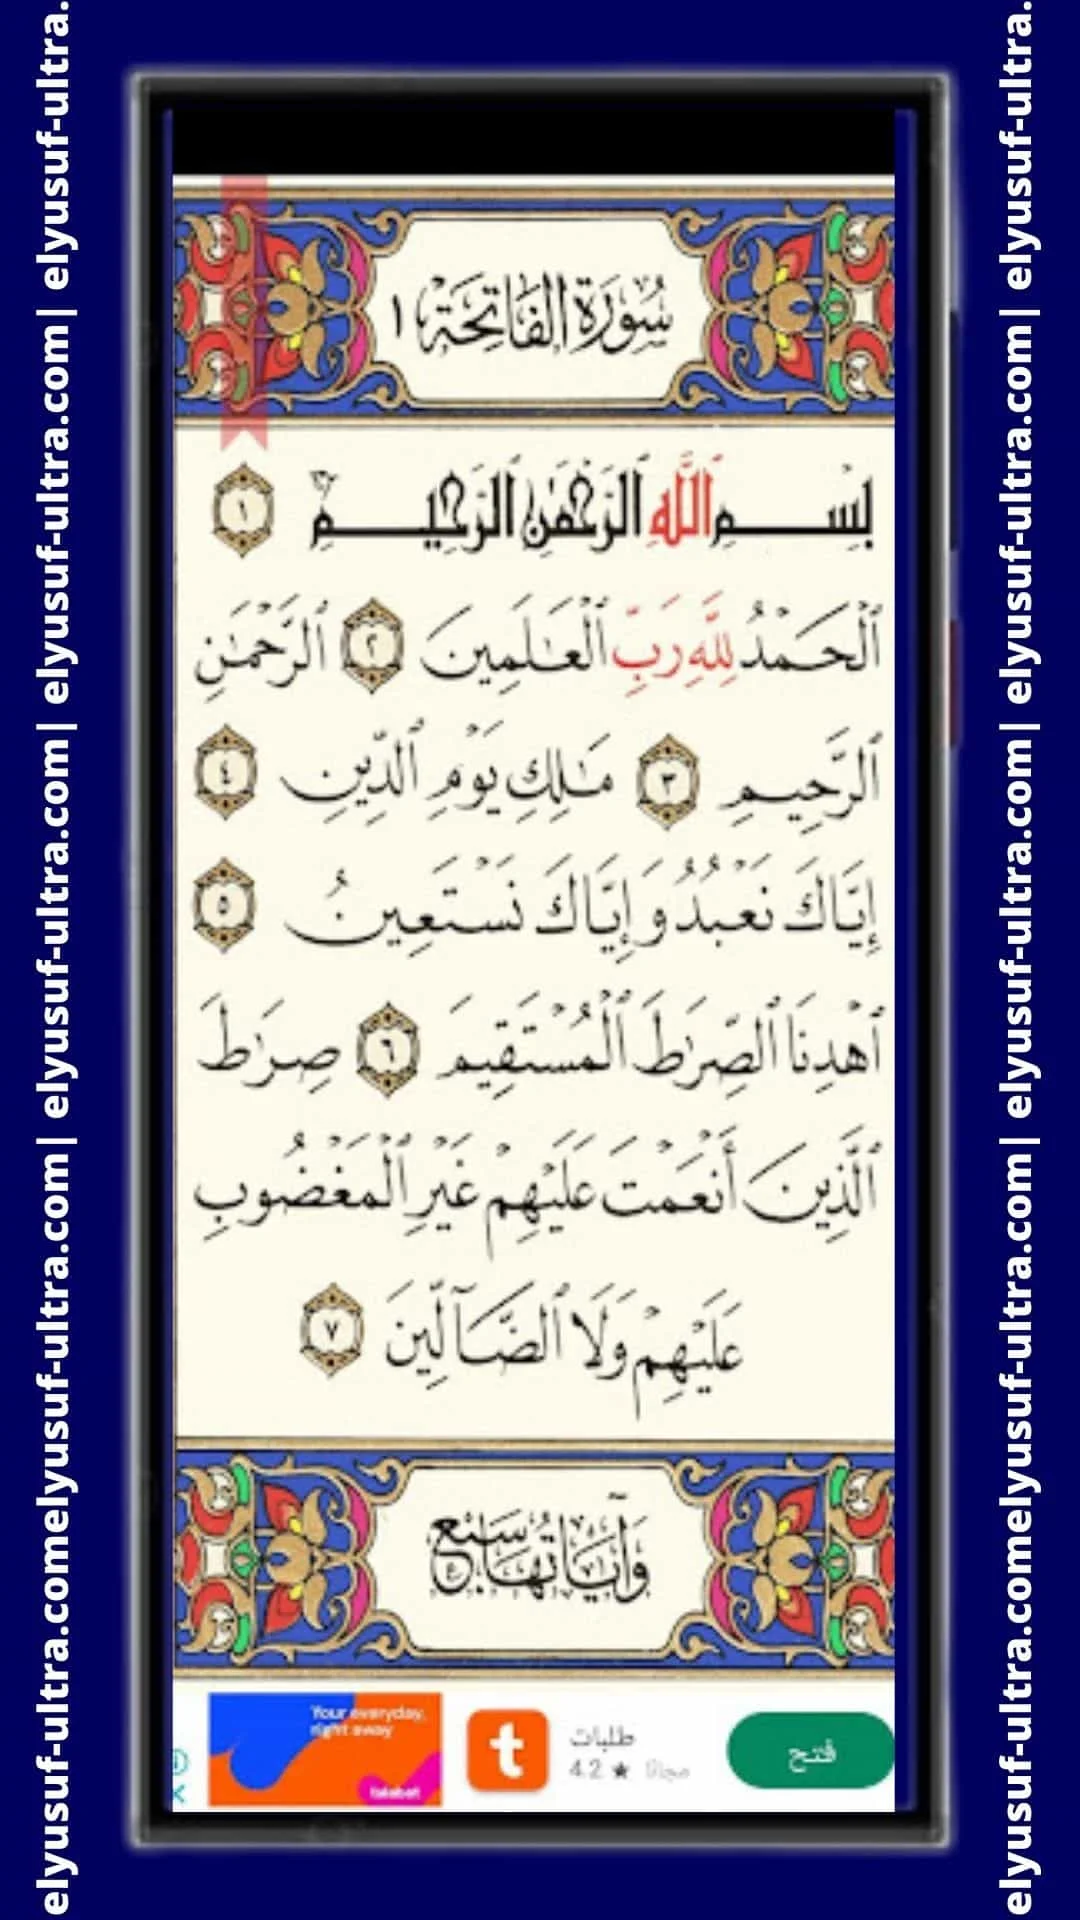 سُورَةُ الفَاتِحَةِ ١
بِسْمِ ٱللَّهِ ٱلرَّحْمَٰنِ ٱلرَّحِيمِ ١
ٱلْحَمْدُ لِلَّهِ رَبِّ ٱلْعَٰلَمِينَ ٢ ٱلرَّحْمَٰنِ
ٱلرَّحِيمِ ٣ مَٰلِكِ يَوْمِ ٱلدِّينِ ٤
إِيَّاكَ نَعْبُدُ وَإِيَّاكَ نَسْتَعِينُ ٥
ٱهْدِنَا ٱلصِّرَٰطَ ٱلْمُسْتَقِيمَ ٦ صِرَٰطَ
ٱلَّذِينَ أَنْعَمْتَ عَلَيْهِمْ غَيْرِ ٱلْمَغْضُوبِ
عَلَيْهِمْ وَلَا ٱلضَّآلِّينَ ٧
وَآيَاتُهَا سَبْع
Your everyday,
right away
talabat
t
طلبات
4.2 ★ مجانًا
فتح
elyusuf-ultra.comelyusuf-ultra.com| elyusuf-ultra.com| elyusuf-ultra.com| elyusuf-ultra.
elyusuf-ultra.comelyusuf-ultra.com| elyusuf-ultra.com| elyusuf-ultra.com| elyusuf-ultra.